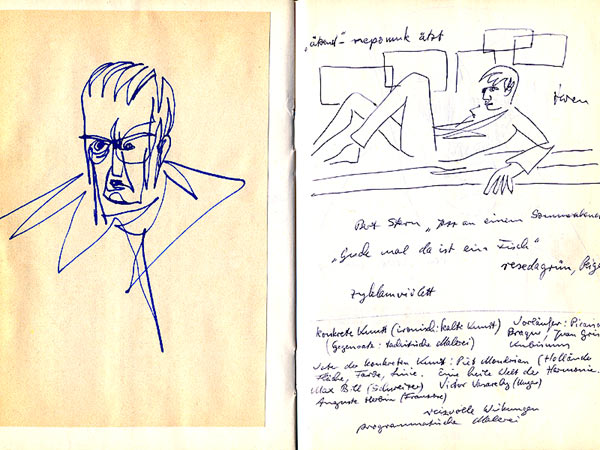 „ätzend" – nepomuk ätzt
Bert Stern „Jazz an einem Sommerabend
„Gude mal da ist ein Fisch"
resedagrün,
zyklamviolett
Konkrete Kunst (ironisch: kalte Kunst)
(Gegensatz: tachistische Malerei)
Vorläufer: Piran
Braque, Juan Gris
Kubismus
Vater der konkreten Kunst: Piet Mondrian (Holländ
Fläche, Farbe, Linie. Eine heile Welt der Harmonie.
Max Bill (Schweizer) Victor Vasarely (Ungar)
Auguste Herbin (Franzose)
reizvolle Wirkungen
programmatische Malerei